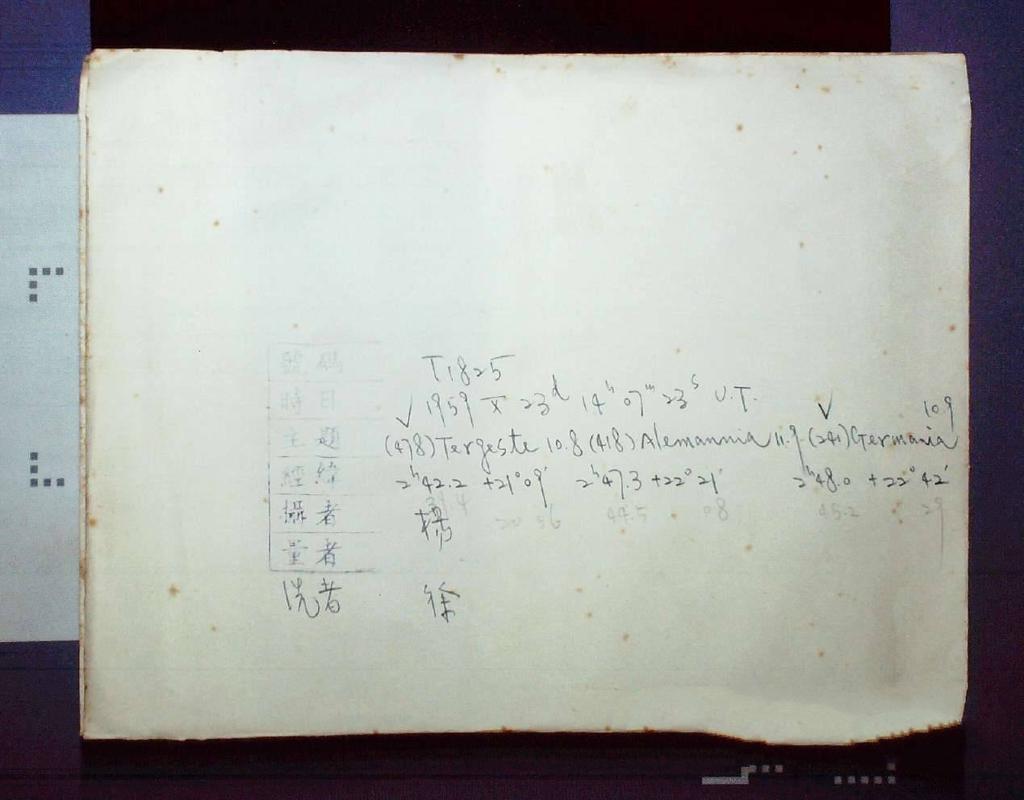 號碼 T1825
時日 1959 X 23d 14h 07m 23s U.T.
10.9
主題 (478) Tergeste 10.8 (418) Alemannia 11.9 (241) Germania
經緯 2h42.2 +21°09' 2h47.3 +22°21' 2h48.0 +22°42'
20 56 44.5 08 45.2 29
攝者 楊
量者
洗者 徐